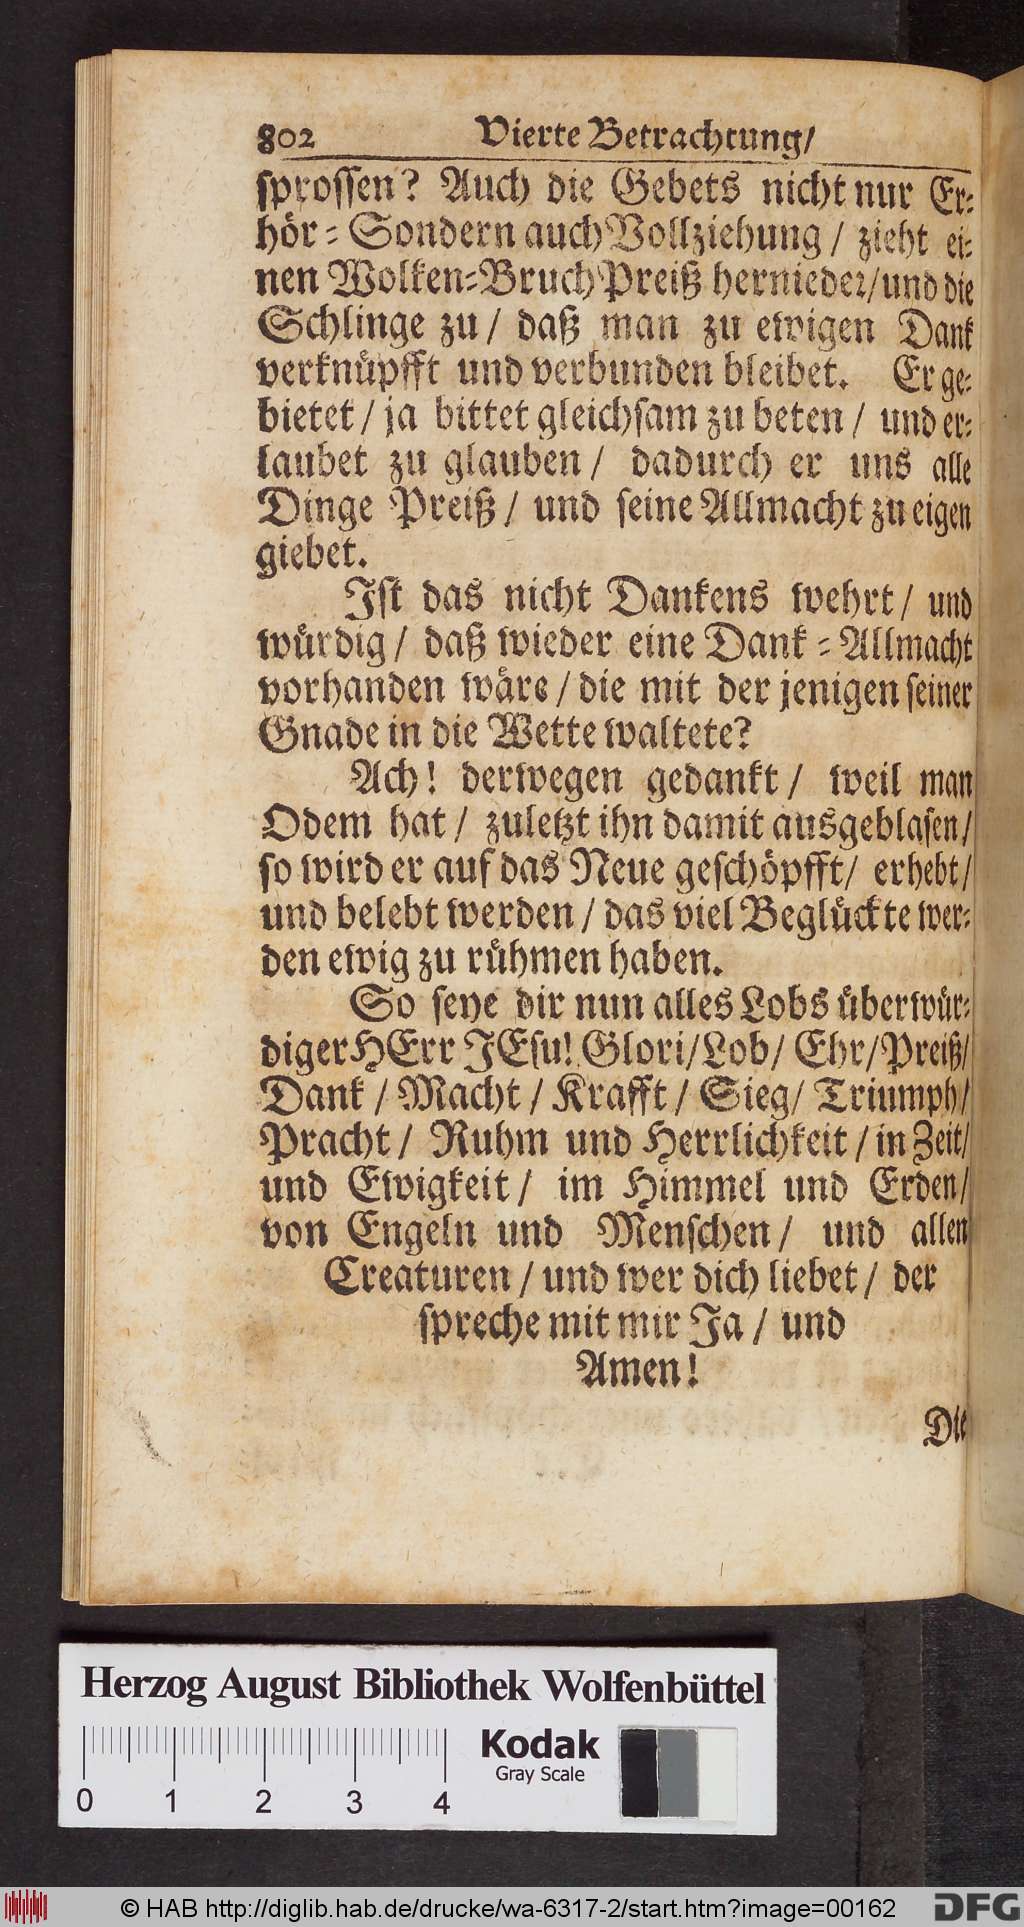 802 Vierte Betrachtung/
sprossen? Auch die Gebets nicht nur Er-
hör-Sondern auch Vollziehung / zieht ei-
nen Wolken-Bruch Preiß hernieder/und die
Schlinge zu / daß man zu ewigen Dank
verknüpfft und verbunden bleibet. Er ge-
bietet / ja bittet gleichsam zu beten / und er-
laubet zu glauben / dadurch er uns alle
Dinge Preiß / und seine Allmacht zu eigen
giebet.
Ist das nicht Dankens wehrt / und
würdig / daß wieder eine Dank-Allmacht
vorhanden wäre / die mit der jenigen seiner
Gnade in die Wette waltete?
Ach! derwegen gedankt / weil man
Odem hat / zuletzt ihn damit ausgeblasen/
so wird er auf das Neue geschöpfft/ erhebt/
und belebt werden / das viel Beglückte wer-
den ewig zu rühmen haben.
So seye dir nun alles Lobs überwür-
diger HErr JEsu! Glori/Lob/ Ehr/Preiß/
Dank / Macht / Krafft / Sieg/ Triumph/
Pracht / Ruhm und Herrlichkeit / in Zeit/
und Ewigkeit / im Himmel und Erden/
von Engeln und Menschen / und allen
Creaturen / und wer dich liebet / der
spreche mit mir Ja / und
Amen!
Die
Herzog August Bibliothek Wolfenbüttel
Kodak
Gray Scale
0 1 2 3 4
© HAB http://diglib.hab.de/drucke/wa-6317-2/start.htm?image=00162
DFG